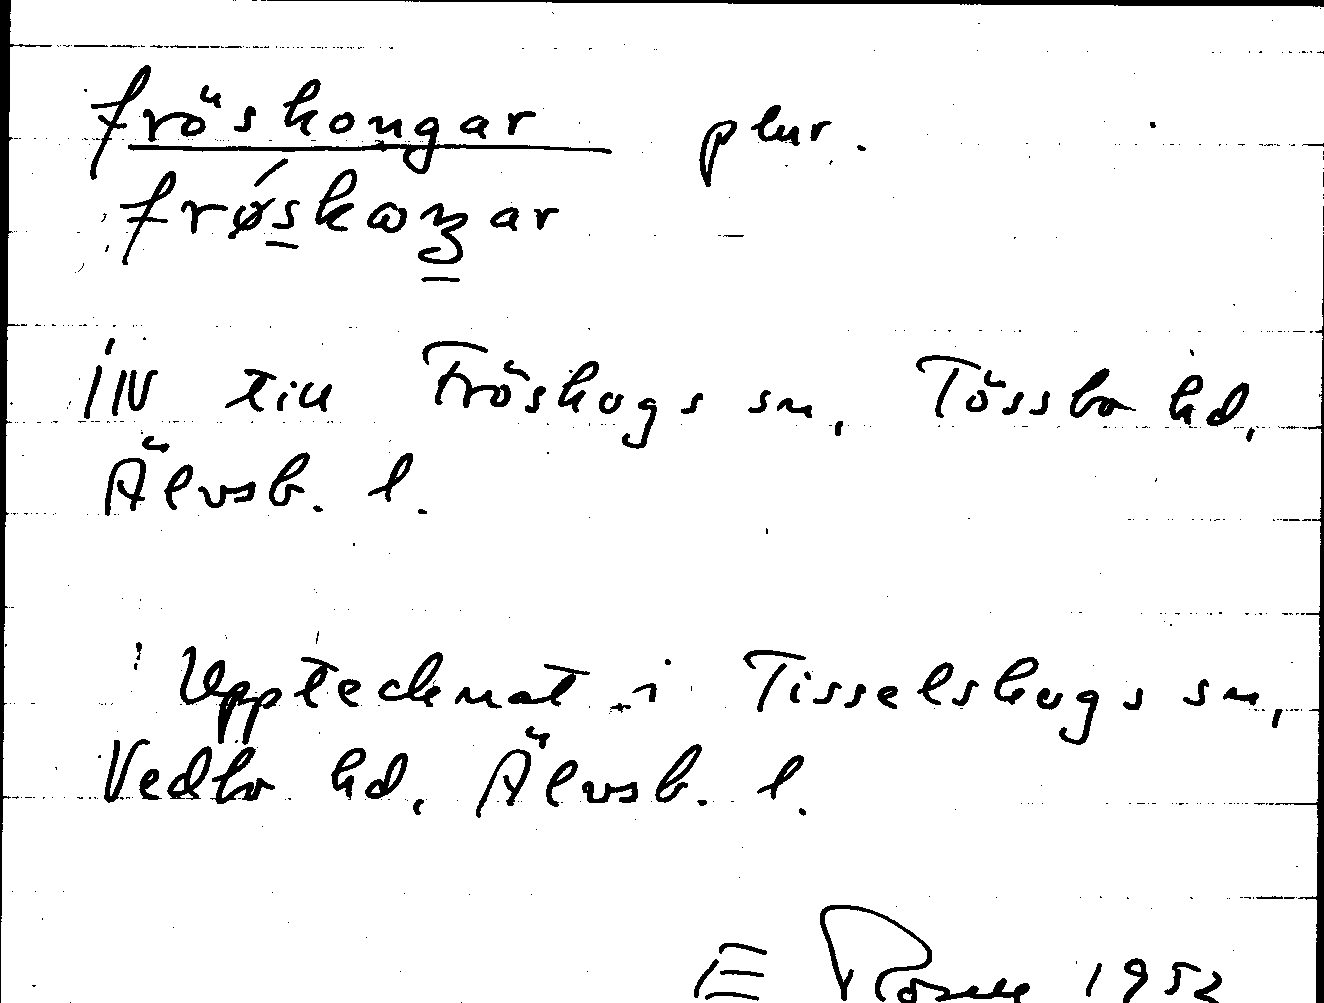 fröskongar plur.
frøskaꞑar
inv till Fröskogs sn, Tössbo hd,
Älvsb. l.
Upptecknat i Tisselskogs sn,
Vedbo hd, Älvsb. l.
E Rosell 1952